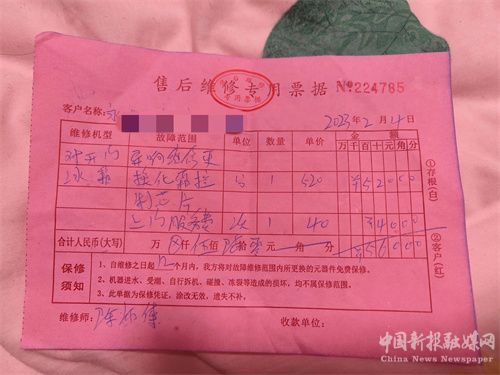 售后维修专用票据 №224785
专用票据
客户名称:
2023年2月4日
维修机型 故障范围 单位 数量 单价 金额
万 千 百 十 元 角 分
对开门 1 520 ¥52000
冰箱 换化霜控
制芯片
上门服务费 次 1 40 ¥4000
合计人民币(大写) 万 仟 伍佰 陆 元 角 分 ¥56000
保修须知
1、自维修之日起12个月内，我方将对故障维修范围内所更换的元器件免费保修。
2、机器进水、受潮、自行拆机、碰撞、冻裂等造成的损坏，均不属保修范围。
3、此单据为保修凭证，涂改无效，遗失不补。
维修师: 收款单位:
①存根(白)
②客户(红)
中国新报融媒网
China News Newspaper